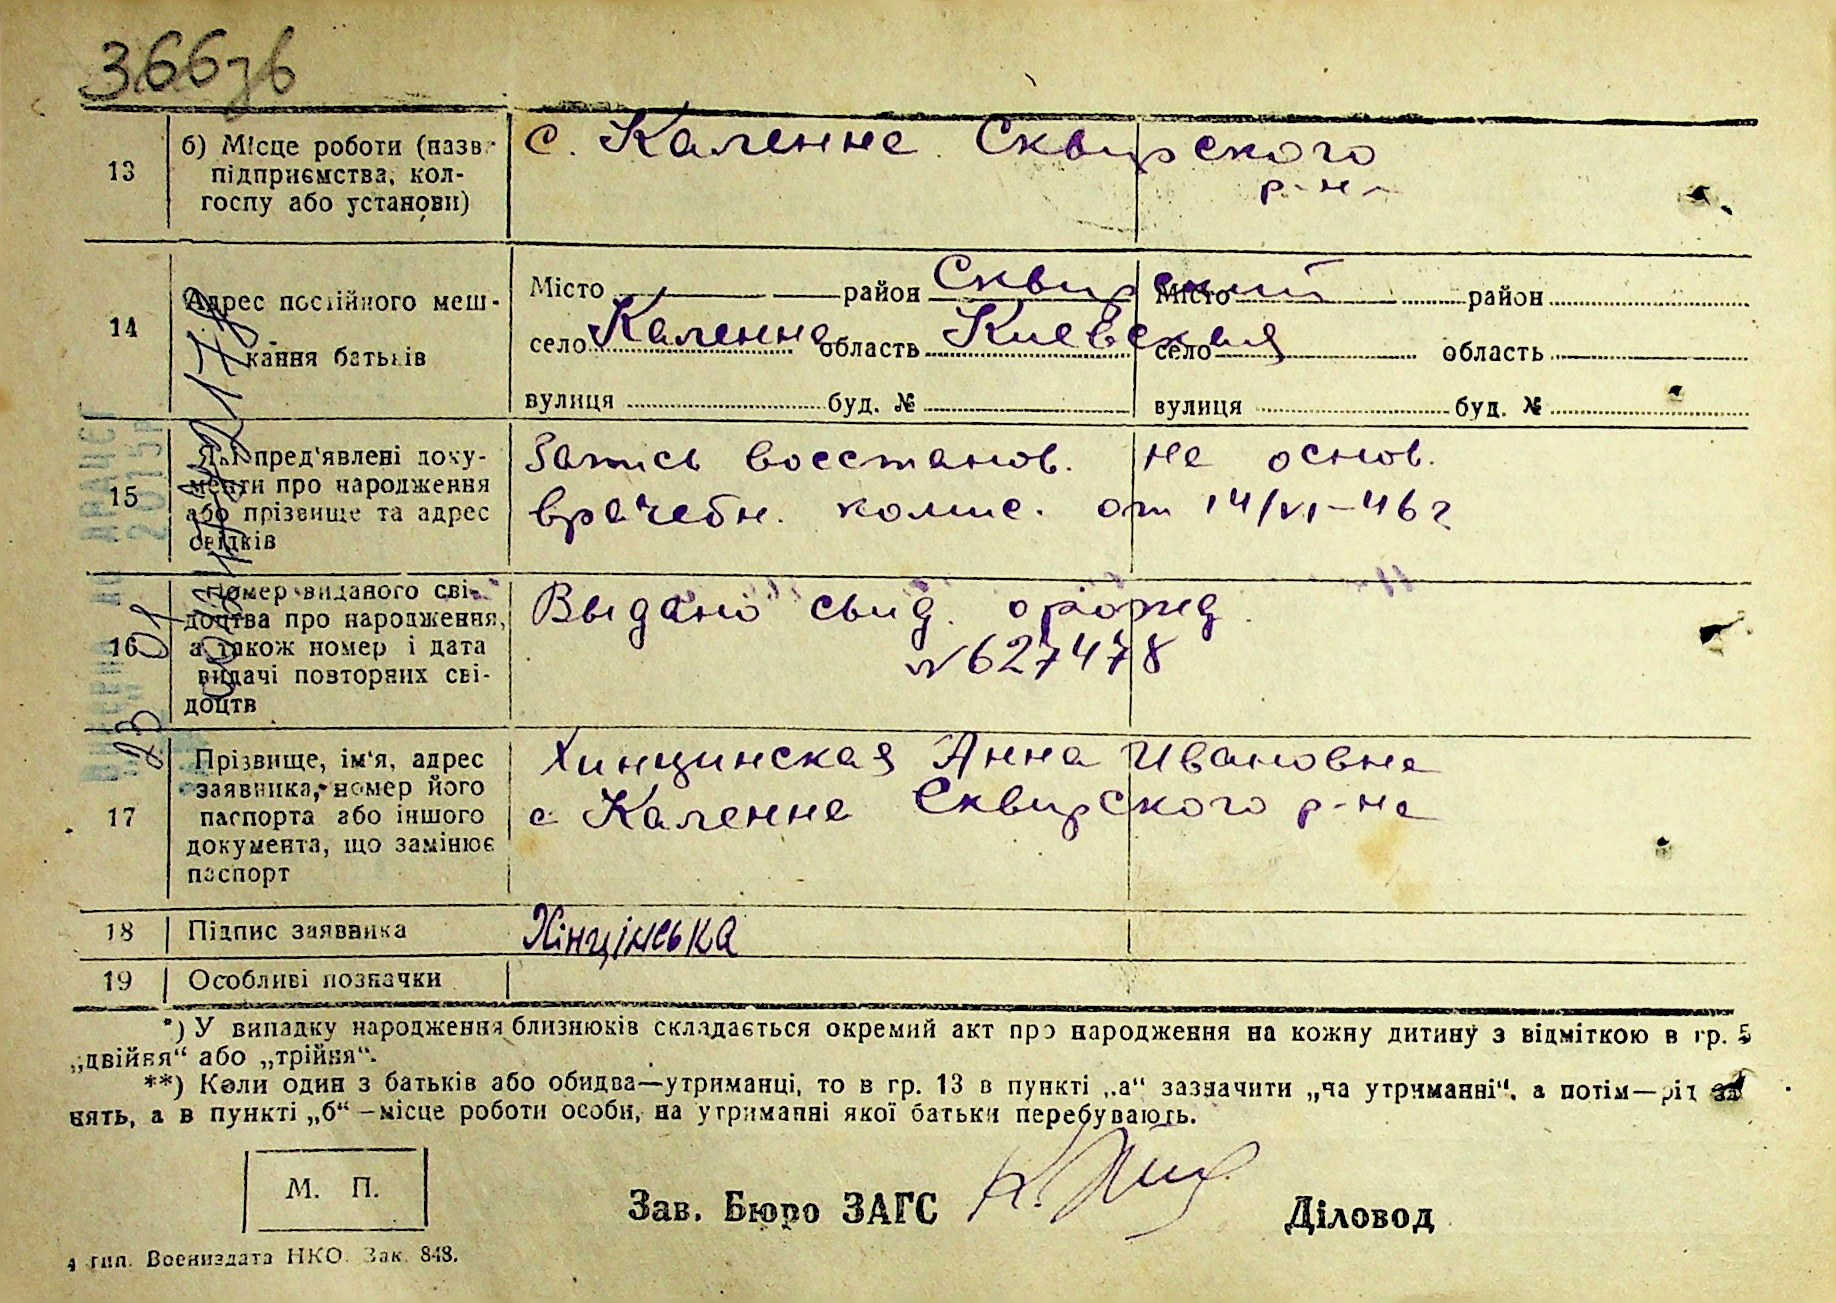 366зв
13
б) Місце роботи (назва
підприємства, кол-
госпу або установи)
с. Каленне Сквирского
р-на
14
Адрес постійного меш-
кання батьків
Місто район Сквирский
село Каленна область Киевская
вулиця буд. №
Місто район
село область
вулиця буд. №
15
Які пред'явлені доку-
менти про народження
або прізвище та адрес
свідків
Запись восстанов. на основ.
врачебн. комис. от 14/VI-46 г
16
Номер виданого сві-
доцтва про народження,
а також номер і дата
видачі повторних сві-
доцтв
Выдано свид. о рожд.
№ 627478
17
Прізвище, ім'я, адрес
заявника, номер його
паспорта або іншого
документа, що замінює
паспорт
Хинцинская Анна Ивановна
с Каленна Сквирского р-на
18
Підпис заявника
Хінцінська
19
Особливі позначки
*) У випадку народження близнюків складається окремий акт про народження на кожну дитину з відміткою в гр. 5
„двійня“ або „трійня“.
**) Коли один з батьків або обидва—утриманці, то в гр. 13 в пункті „а“ зазначити „на утриманні“, а потім—рід за
нять, а в пункті „б“ —місце роботи особи, на утриманні якої батьки перебувають.
М. П.
Зав. Бюро ЗАГС
Діловод
4 тип. Воениздата НКО. Зак. 848.